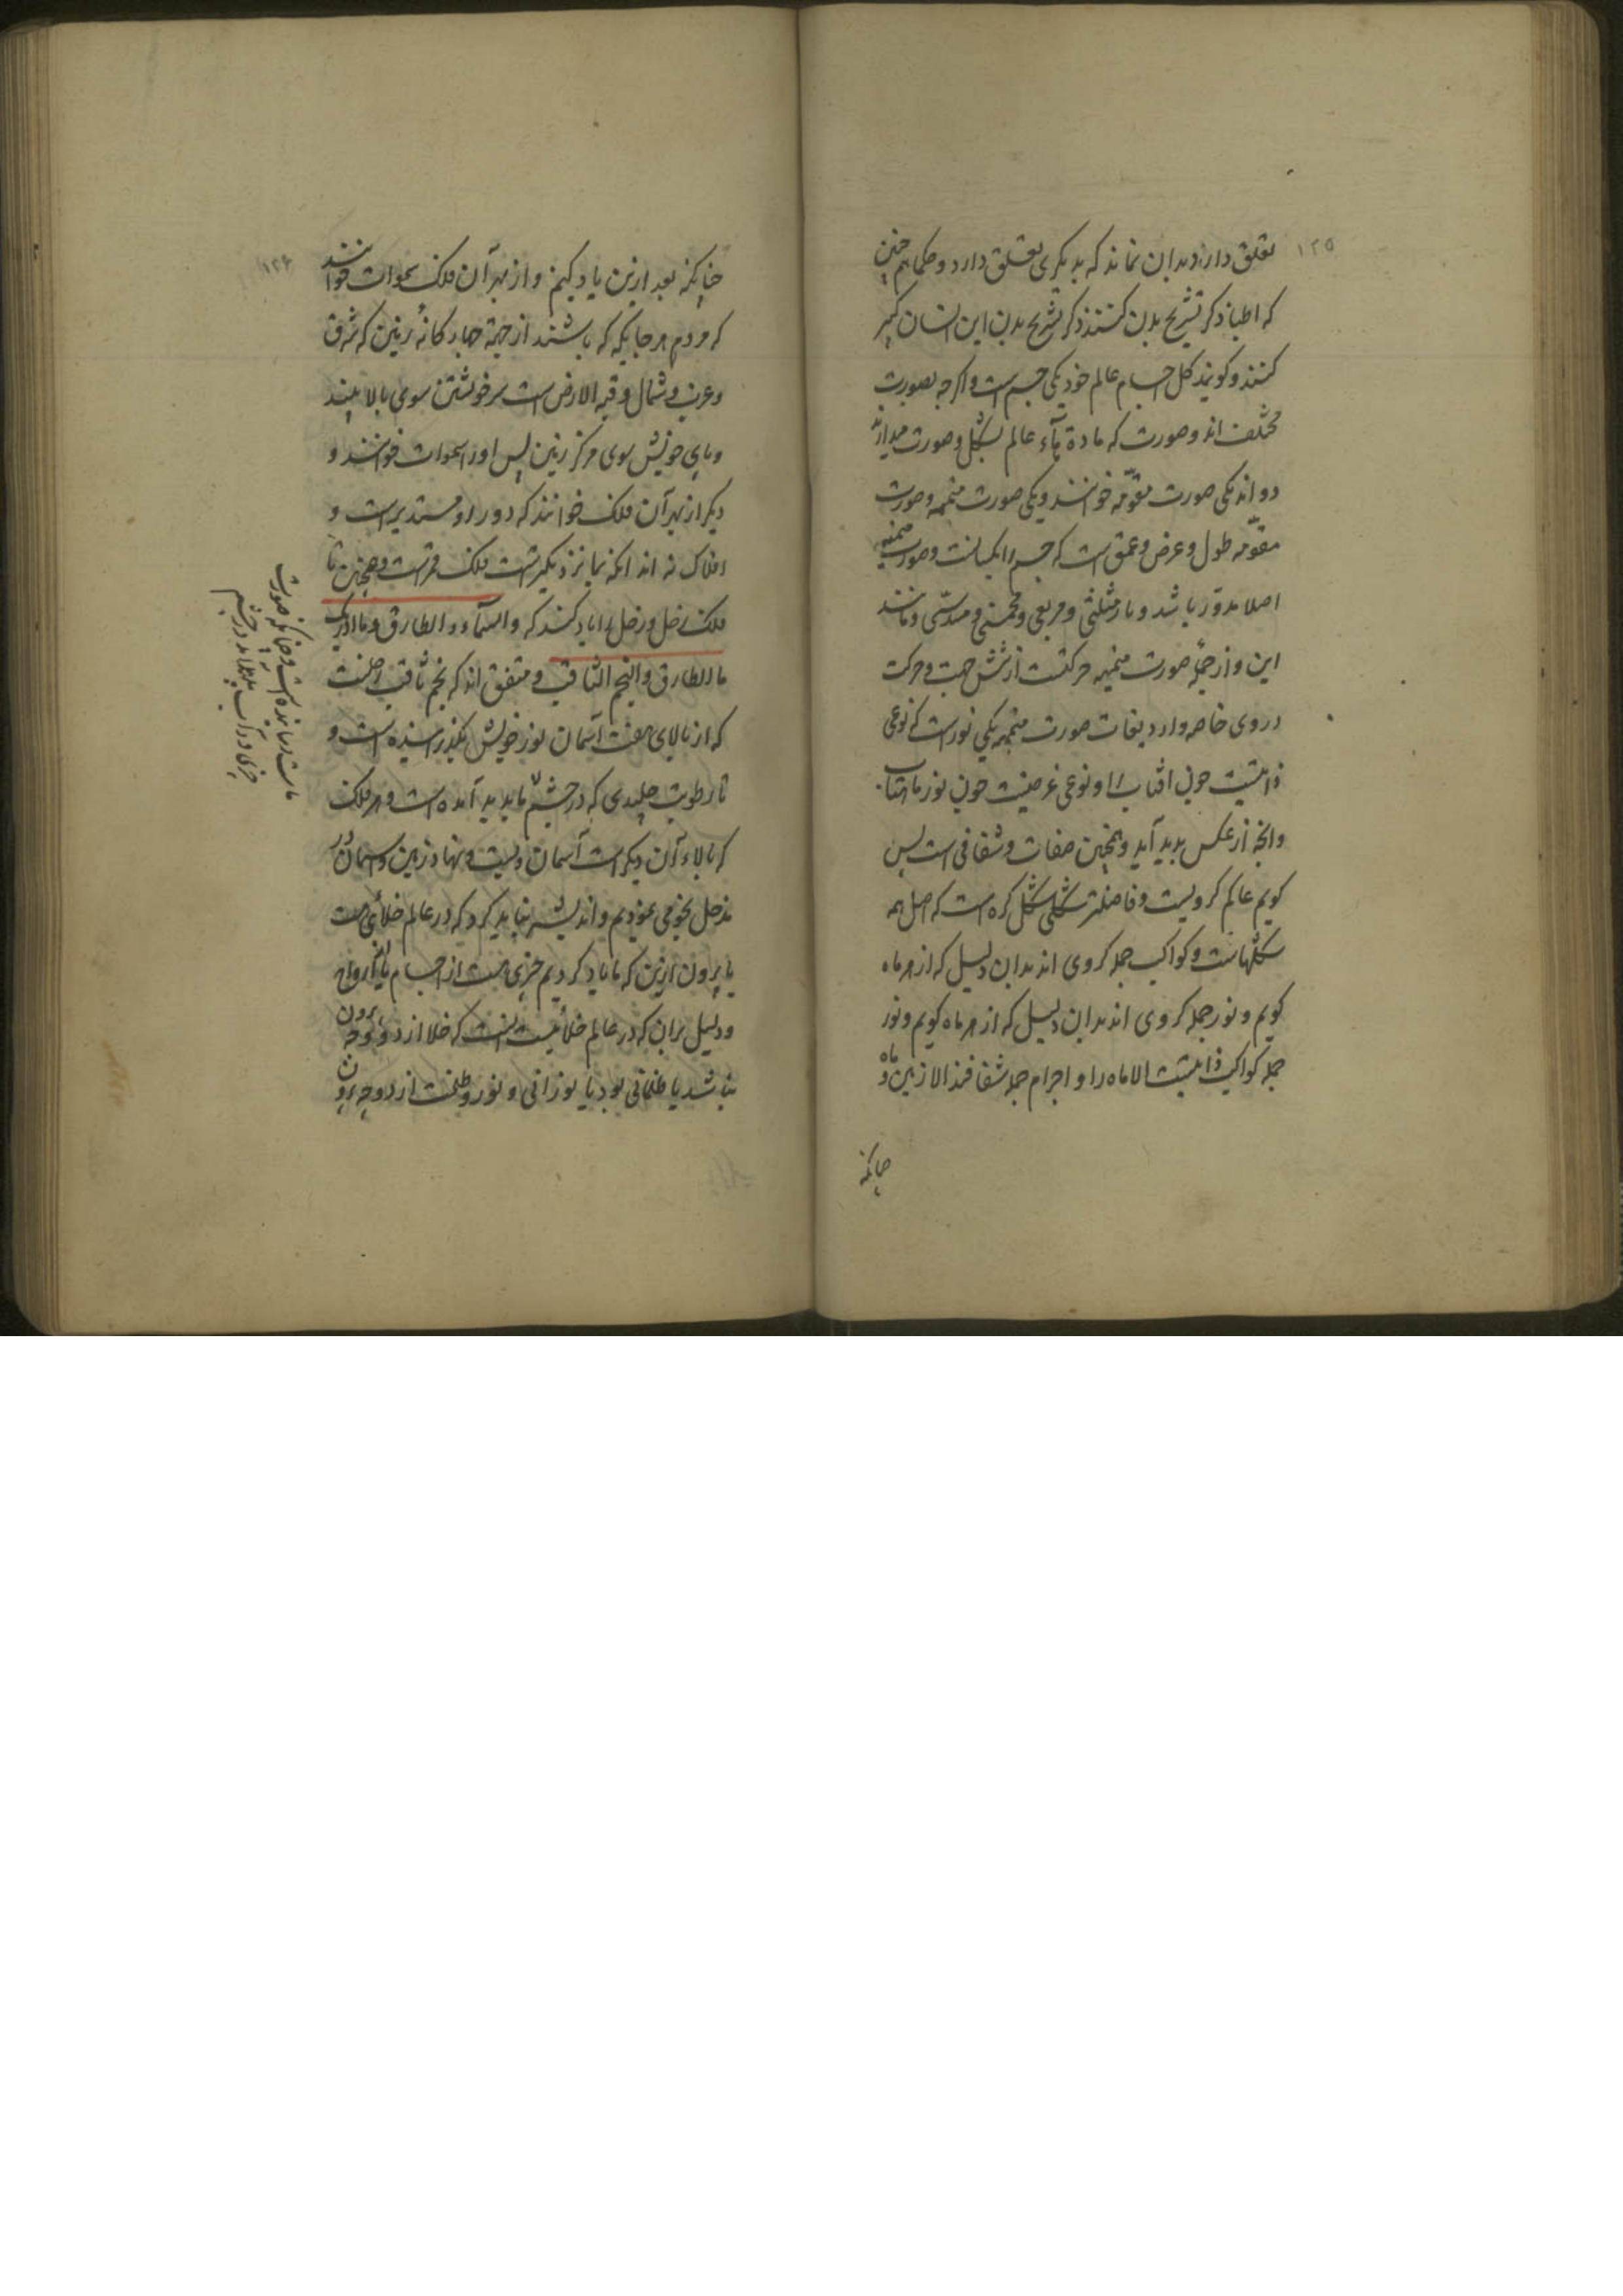 ۱۲۵
تعلق دارد بدان نماند که بدیگری تعلق دارد و حکما همچنین
که اطبا ذکر تشریح بدن کنند ذکر تشریح بدن این انسان کبیر
کنند و کویند کل اجسام عالم خود یکی جسم است و اکرچه بصورت
مختلف اند و صورت که مادة عالم بشکل و صورت میدارند
دو اند یکی صورت مقوّمه خوانند و یکی صورت متممه و صورت
مقوّمه طول و عرض و عمق است که جسم را یکسانست و صورت متممه
اصلا مدوّر باشد و یا مثلثی و مربعی و مخمسی و مسدسی و مانند
این و از جملهٔ صورت متممه حرکتست از شش جهت و حرکت
دروی خاصه وارد صفات صورت متممه یکی نورست که نوعی
ذاتیست چون افتاب را و نوعی عرضیست چون نور ماهتاب
وانچه از عکس بدید آید و همچنین صفات و شفافی است پس
کویم عالم کرویست و فاضلترشکلی شکل کره است که اصل همه
شکلهاست و کواکب جمله کروی اند بدان دلیل که از بهر ماه
کویم و نور جمله کروی اند بدان دلیل که از بهر ماه کویم و نور
جمله کواکب ذاتیست الا ماه را و اجرام جمله شفافند الا زمین و ماه
چنانکه
۱۲۶
چنانکه بعد ازین یاد کنیم و از بهر آن فلک سموات خوانند
که مردم هرجایکه که باشند از جهة چهارکانهٔ زمین که شرق
و غرب و شمال و قبه الارض است سر خویشتن سوی بالا بینند
و پای خویش سوی مرکز زمین پس اورا سموات خوانند و
دیکر از بهر آن فلک خوانند که دور او مستدیر است و
افلاک نه اند انکه بما نزدیکترست فلک قمرست و همچنین تا
فلک زحل و زحل را یاد کند که والسمآء والطارق وما ادریک
ما الطارق والنجم الثاقب و متفق اند که نجم ثاقب زحلست
که از بالای هفت آسمان نور خویش بکذرانیده است و
تا رطوبت جلیدی که در چشم ما بدید آمده است و هر فلک
که بالاء آن دیکر است آسمان ویست و نهاد زمین و آسمان در
مدخل نجومی نمودیم و اندیشه نباید کرد که در عالم خلأی هست
یا بیرون ازین که ما یاد کردیم چیزی هست از اجسام یا ارواح
و دلیل بران که در عالم خلأ نیست انست که خلا از دو وجه بیرون
نباشد یا ظلمانی بود یا نورانی و نور و ظلمت از دو وجه بیرون
ماست رسانیده است و چنانکه صورت
چیزی در آب بدید آید در چشم